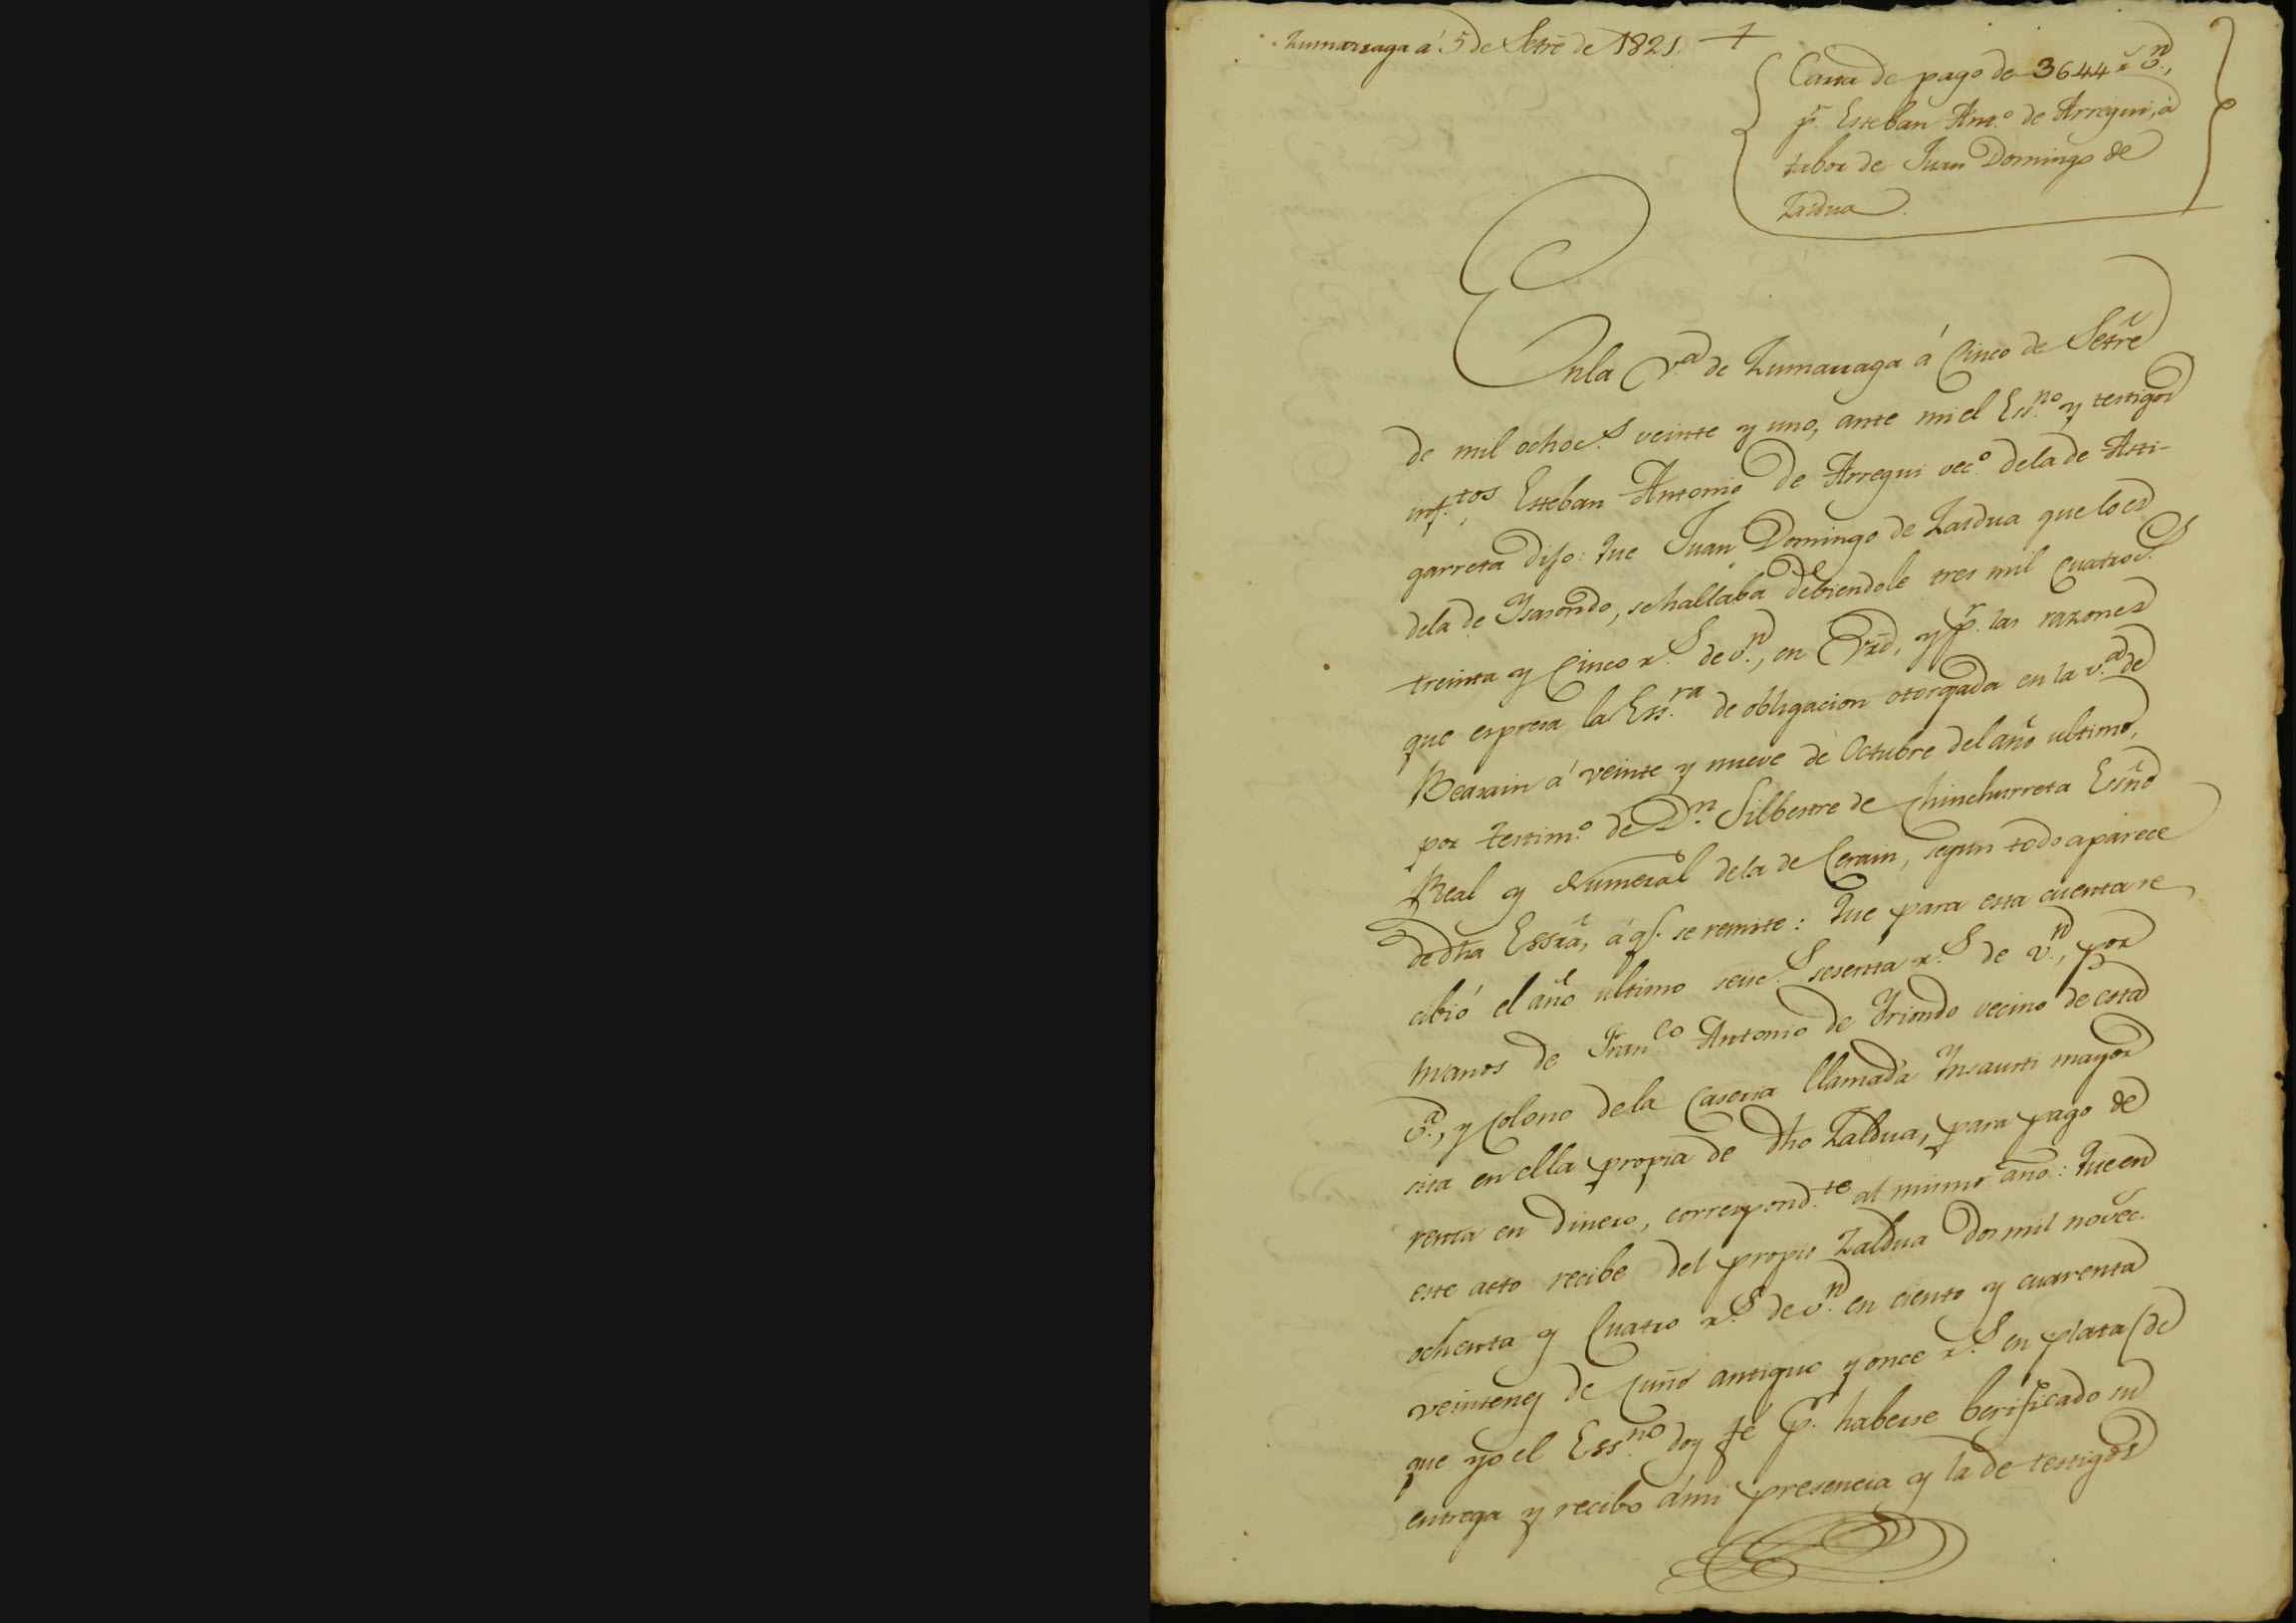 Zumarraga á 5 de Setre de 1821.
Carta de pago de 3644 rs vn.,
pr. Esteban Anto. de Arregui, á
fabor de Juan Domingo de
Zaldua.
En la va. de Zumarraga á Cinco de Setre
de mil ochocs. veinte y uno, ante mi el Essno. y testigos
inf.tos Esteban Antonio de Arregui veco. dela de Asti-
garreta dijo: Que Juan Domingo de Zaldua que lo es
dela de Ysasondo, se hallaba debiendole tres mil Cuatrocs.
treinta y Cinco rs. de vn., en Vrd, y pr. las razones
que espresa la Essra. de obligacion otorgada en la va. de
Beasain á veinte y nueve de Octubre del año ultimo,
por testimo. de Dn. Silbestre de Chinchurreta Essño
Real y Numeral dela de Cerain, segun todo aparece
de dha Essrã, á q. se remite: Que para esta cuenta re
cibió el año ultimo seisc.s sesenta rs. de vn., por
manos de Franco. Antonio de Yriondo vecino de esta
va., y Colono dela Caseria llamada Insausti mayor
sita en ella propia de dho Zaldua, para pago de
renta en dinero, correspond.te al mismo año: Que en
este acto recibe del propio Zaldua dos mil novec.s
ochenta y Cuatro rs. de vn. en ciento y cuarenta
veintenes de Cuño antiguo y once rs. en plata (de
que yo el Essno. doy fe pr. haberse berificado su
entrega y recibo ámi presencia y la de testigos